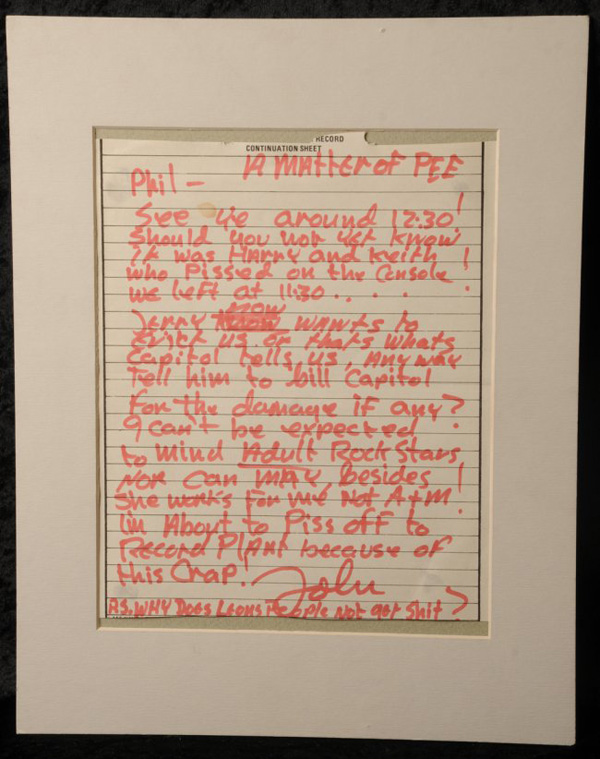 RECORD
CONTINUATION SHEET
A MAtter of PEE
Phil —
See Ye around 12:30!
Should you not yet know
It was Harry and Keith
who Pissed on the Console!
we left at 11:30....
Jerry now wants to
Evict us or thats whats
Capitol tells us, Anyway
Tell him to bill Capitol
For the damage if any?
I can't be expected
to mind Adult Rock Stars,
Nor Can May, besides
She works for me Not A+M!
I'm About to Piss off to
Record Plant because of
this Crap. John
P.S. WHY Does Leons People Not get Shit?